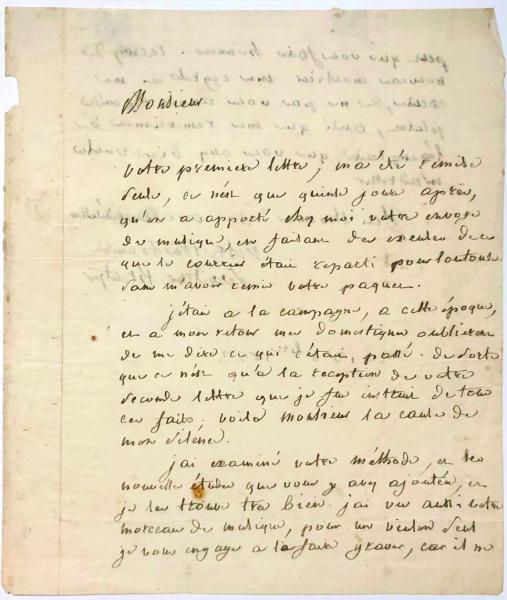 Monsieur
votre premiere lettre, m'a été remise
seule, ce n'est que quinze jours après,
qu'on a apporté chez moi, votre envoye
de musique, en faisant des excuses de ce
que le courrier était reparti pour
sans m'avoir remis votre paquet.
j'étais a la campagne, a cette époque,
et a mon retour mes domestiques oublierent
de me dire ce qui s'étais passé. de sorte
que ce n'ést qu'a la reception de votre
seconde lettre que je fus instruit de tous
ces faits, voila monsieur la cause de
mon silence.
j'ai examiné votre méthode, et les
nouvelle études que vous y avez ajoutés, et
je les trouve tres bien. j'ai vu aussi votre
morceau de musique, pour un violon seul
je vous engage a la faire graver, car il ne